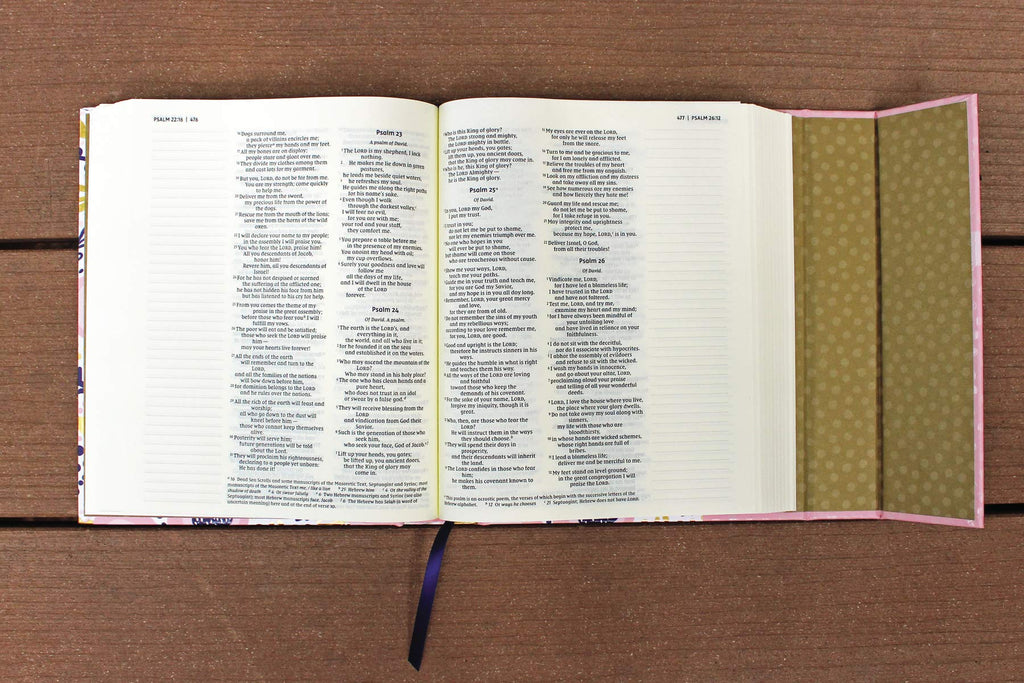 PSALM 22:16 | 476
16 Dogs surround me,
a pack of villains encircles me;
they pierce e my hands and my feet.
17 All my bones are on display;
people stare and gloat over me.
18 They divide my clothes among them
and cast lots for my garment.
19 But you, LORD, do not be far from me.
You are my strength; come quickly
to help me.
20 Deliver me from the sword,
my precious life from the power of
the dogs.
21 Rescue me from the mouth of the lions;
save me from the horns of the wild
oxen.
22 I will declare your name to my people;
in the assembly I will praise you.
23 You who fear the LORD, praise him!
All you descendants of Jacob,
honor him!
Revere him, all you descendants of
Israel!
24 For he has not despised or scorned
the suffering of the afflicted one;
he has not hidden his face from him
but has listened to his cry for help.
25 From you comes the theme of my
praise in the great assembly;
before those who fear you f I will
fulfill my vows.
26 The poor will eat and be satisfied;
those who seek the LORD will praise
him —
may your hearts live forever!
27 All the ends of the earth
will remember and turn to the
LORD,
and all the families of the nations
will bow down before him,
28 for dominion belongs to the LORD
and he rules over the nations.
29 All the rich of the earth will feast and
worship;
all who go down to the dust will
kneel before him —
those who cannot keep themselves
alive.
30 Posterity will serve him;
future generations will be told
about the Lord.
31 They will proclaim his righteousness,
declaring to a people yet unborn:
He has done it!
Psalm 23
A psalm of David.
1 The LORD is my shepherd, I lack
nothing.
2 He makes me lie down in green
pastures,
he leads me beside quiet waters,
3 he refreshes my soul.
He guides me along the right paths
for his name's sake.
4 Even though I walk
through the darkest valley,
I will fear no evil,
for you are with me;
your rod and your staff,
they comfort me.
5 You prepare a table before me
in the presence of my enemies.
You anoint my head with oil;
my cup overflows.
6 Surely your goodness and love will
follow me
all the days of my life,
and I will dwell in the house
of the LORD
forever.
Psalm 24
Of David. A psalm.
1 The earth is the LORD's, and
everything in it,
the world, and all who live in it;
2 for he founded it on the seas
and established it on the waters.
3 Who may ascend the mountain of the
LORD?
Who may stand in his holy place?
4 The one who has clean hands and a
pure heart,
who does not trust in an idol
or swear by a false god.
5 They will receive blessing from the
LORD
and vindication from God their
Savior.
6 Such is the generation of those who
seek him,
who seek your face, God of Jacob.
7 Lift up your heads, you gates;
be lifted up, you ancient doors,
that the King of glory may
come in.
16 Dead Sea Scrolls and some manuscripts of the Masoretic Text, Septuagint and Syriac; most
manuscripts of the Masoretic Text me, / like a lion 25 Hebrew him 4 Or the valley of the
shadow of death 4 Or swear falsely 6 Two Hebrew manuscripts and Syriac (see also
Septuagint); most Hebrew manuscripts face, Jacob 6 The Hebrew has Selah (a word of
uncertain meaning) here and at the end of verse 10.
477 | PSALM 26:12
8 Who is this King of glory?
The LORD strong and mighty,
the LORD mighty in battle.
9 Lift up your heads, you gates;
lift them up, you ancient doors,
that the King of glory may come in.
10 Who is he, this King of glory?
The LORD Almighty —
he is the King of glory.
Psalm 25
Of David.
1 In you, LORD my God,
I put my trust.
2 I trust in you;
do not let me be put to shame,
nor let my enemies triumph over me.
3 No one who hopes in you
will ever be put to shame,
but shame will come on those
who are treacherous without cause.
4 Show me your ways, LORD,
teach me your paths.
5 Guide me in your truth and teach me,
for you are God my Savior,
and my hope is in you all day long.
6 Remember, LORD, your great mercy
and love,
for they are from of old.
7 Do not remember the sins of my youth
and my rebellious ways;
according to your love remember me,
for you, LORD, are good.
8 Good and upright is the LORD;
therefore he instructs sinners in his
ways.
9 He guides the humble in what is right
and teaches them his way.
10 All the ways of the LORD are loving
and faithful
toward those who keep the
demands of his covenant.
11 For the sake of your name, LORD,
forgive my iniquity, though it is
great.
12 Who, then, are those who fear the
LORD?
He will instruct them in the ways
they should choose.
13 They will spend their days in
prosperity,
and their descendants will inherit
the land.
14 The LORD confides in those who fear
him;
he makes his covenant known to
them.
15 My eyes are ever on the LORD,
for only he will release my feet
from the snare.
16 Turn to me and be gracious to me,
for I am lonely and afflicted.
17 Relieve the troubles of my heart
and free me from my anguish.
18 Look on my affliction and my distress
and take away all my sins.
19 See how numerous are my enemies
and how fiercely they hate me!
20 Guard my life and rescue me;
do not let me be put to shame,
for I take refuge in you.
21 May integrity and uprightness
protect me,
because my hope, LORD, is in you.
22 Deliver Israel, O God,
from all their troubles!
Psalm 26
Of David.
1 Vindicate me, LORD,
for I have led a blameless life;
I have trusted in the LORD
and have not faltered.
2 Test me, LORD, and try me,
examine my heart and my mind;
3 for I have always been mindful of
your unfailing love
and have lived in reliance on your
faithfulness.
4 I do not sit with the deceitful,
nor do I associate with hypocrites.
5 I abhor the assembly of evildoers
and refuse to sit with the wicked.
6 I wash my hands in innocence,
and go about your altar, LORD,
7 proclaiming aloud your praise
and telling of all your wonderful
deeds.
8 LORD, I love the house where you live,
the place where your glory dwells.
9 Do not take away my soul along with
sinners,
my life with those who are
bloodthirsty,
10 in whose hands are wicked schemes,
whose right hands are full of
bribes.
11 I lead a blameless life;
deliver me and be merciful to me.
12 My feet stand on level ground;
in the great congregation I will
praise the LORD.
This psalm is an acrostic poem, the verses of which begin with the successive letters of the
Hebrew alphabet. 12 Or ways he chooses 21 Septuagint; Hebrew does not have LORD.